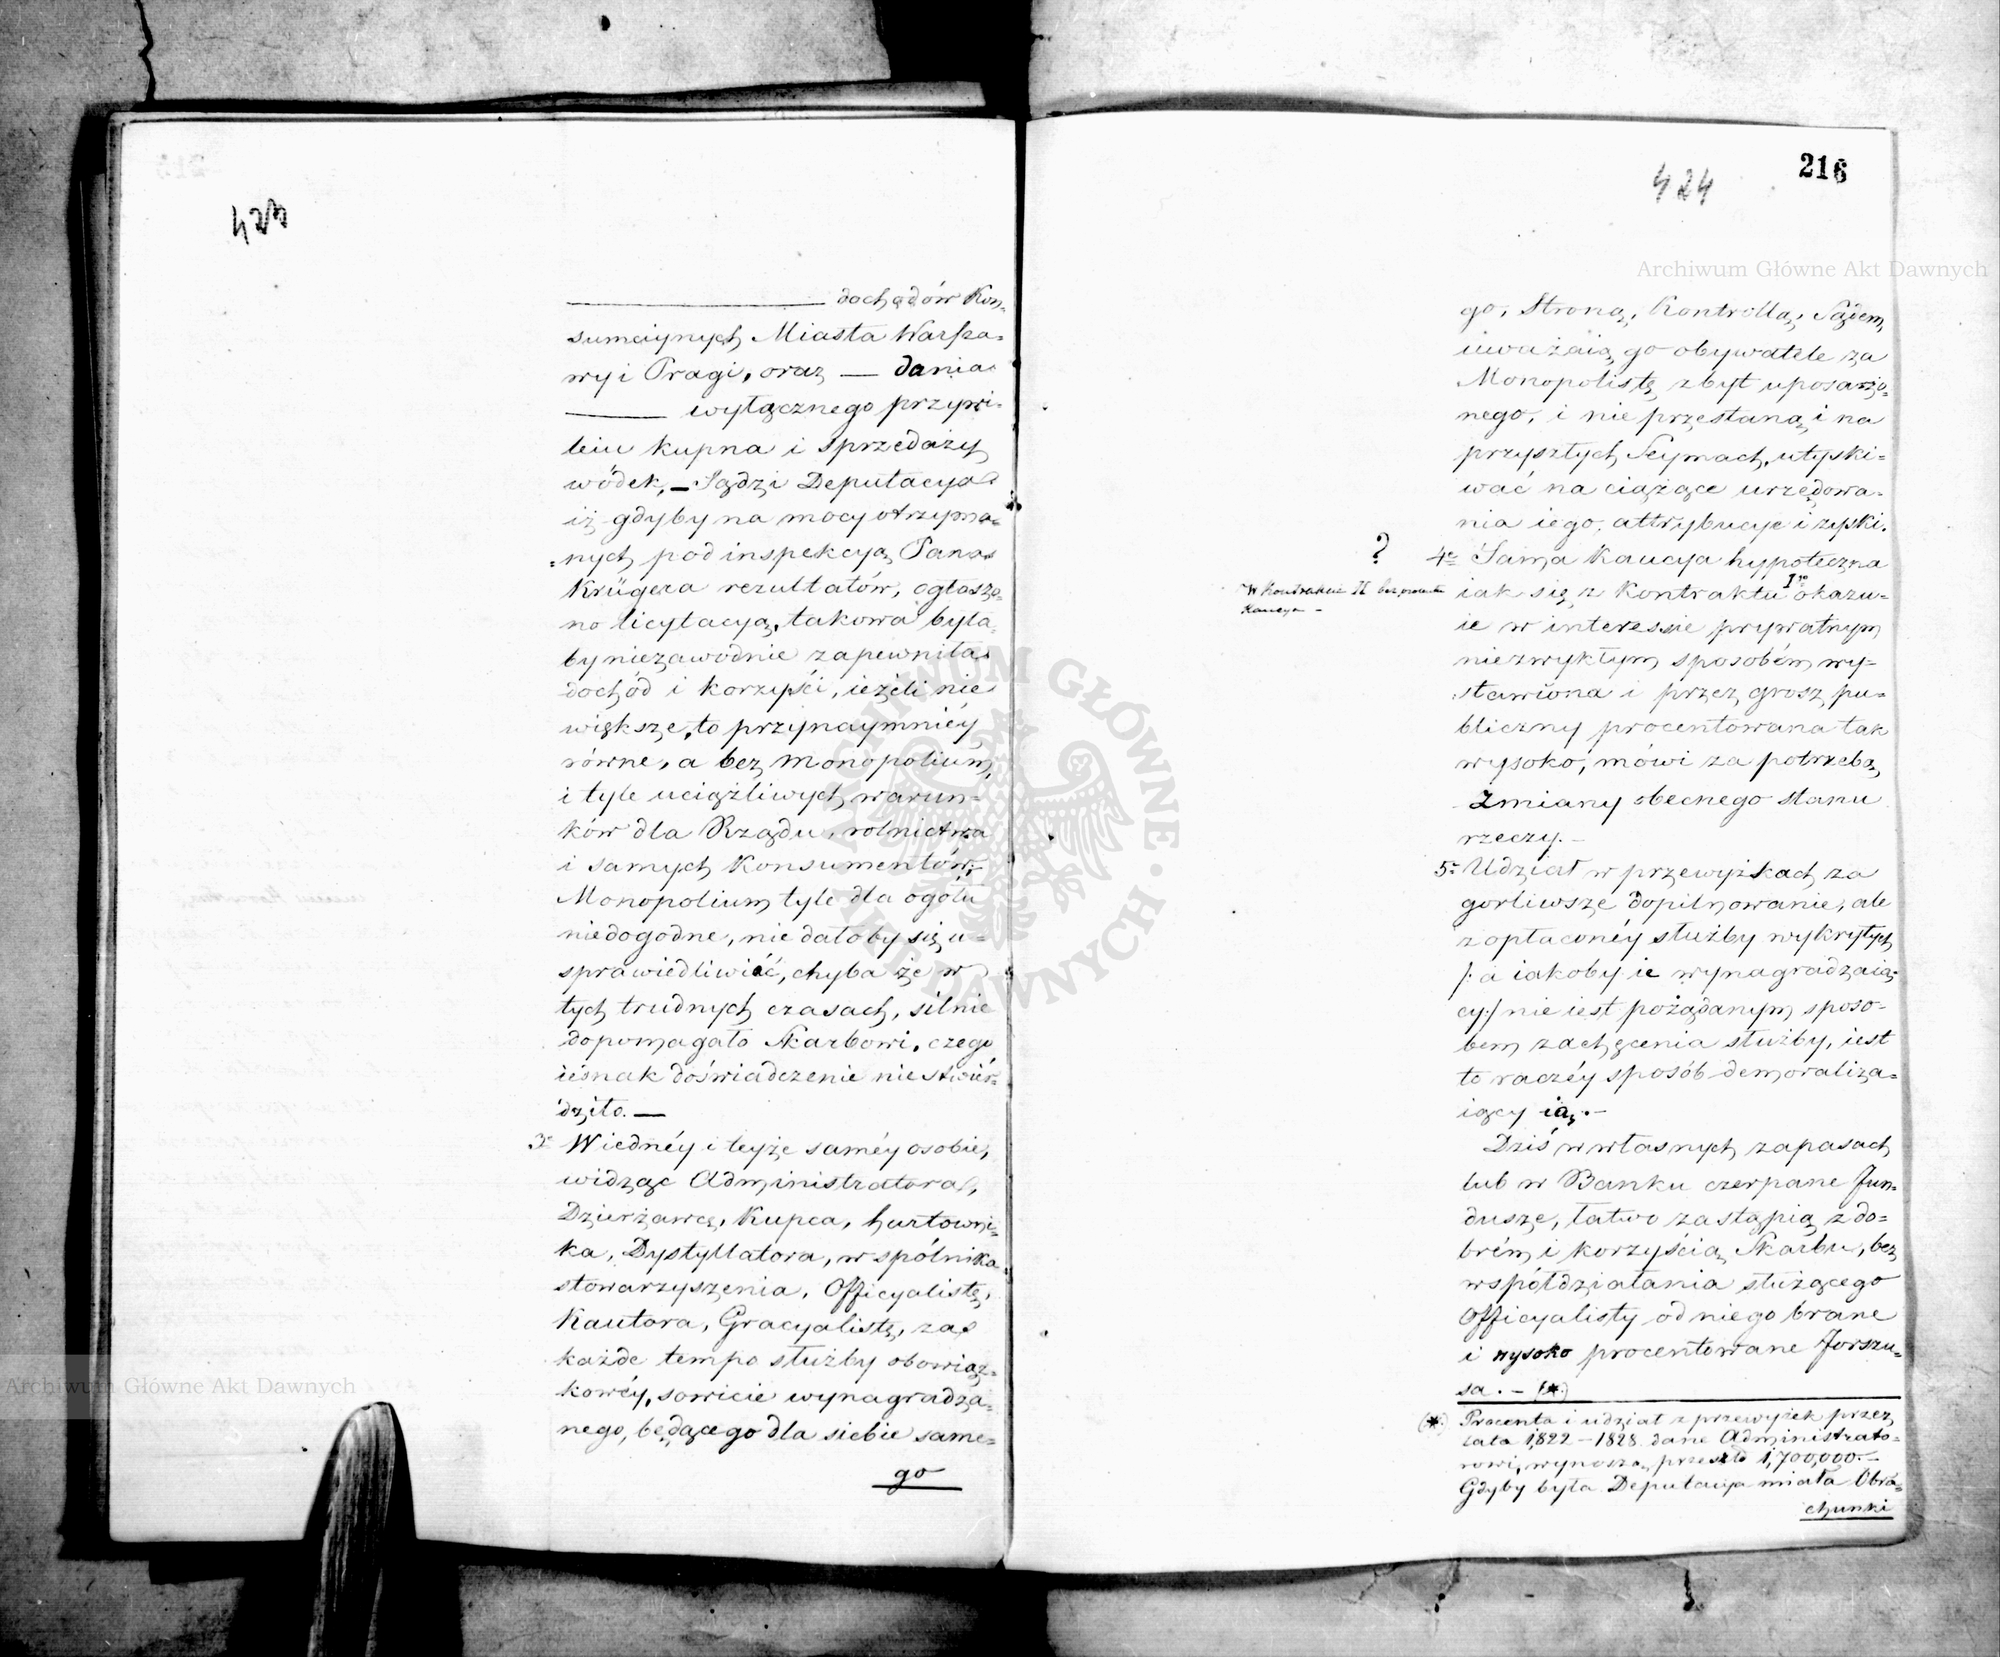 423
dochodów Kon-
sumciynych Miasta Warsza-
wy i Pragi, oraz — dania
wyłącznego przywi-
leiu kupna i sprzedaży
wódek, — Sądzi Deputacya
iż gdyby na mocy otrzyma-
nych pod inspekcyą Pana
Krügera rezultatów, ogłaszo-
no licytacyą, takowa była-
by niezawodnie zapewniła
dochód i korzyści, ieżeli nie
większe, to przynaymniéy
równe, a bez monopolium,
i tyle uciążliwych warun-
ków dla Rządu, rolnictwa
i samych Konsumentów;
Monopolium tyle dla ogółu
niedogodne, nie dałoby się u-
sprawiedliwić, chyba że w
tych trudnych czasach, silnie
dopomagało Skarbowi, czego
iednak doświadczenie nie stwier-
dziło. —
3e W iednéy i teyże saméy osobie,
widząc Administratora,
Dzierżawcę, Kupca, hurtowni-
ka, Dystyllatora, wspólnika
stowarzyszenia, Officyalistę,
Kantora, Gracyalistę, za
każde tempo służby obowiąz-
kowéy, sowicie wynagradza-
nego, będącego dla siebie same-
go
216
424
go, Stroną, Kontrollą, Sądem,
uważaią go obywatele za
Monopolistę zbyt uposażo-
nego, i nie przestaną i na
przyszłych Seymach, utyski-
wać na ciążące urzędowa-
nia iego, attrybucye i zyski.
?
4e Sama Kaucya hypoteczna
W Kontrakcie II bez procentu
Kaucya —
iak się z Kontraktu Igo okazu-
ie w interessie prywatnym
niezwykłym sposobem wy-
stawiona i przez grosz pu-
bliczny procentowana tak
wysoko, mówi za potrzebą
zmiany obecnego stanu
rzeczy. —
5e Udział w przewyżkach za
gorliwsze dopilnowanie, ale
z opłaconéy służby wykrytych
/: a iakoby ie wynagradzaią-
cy :/ nie iest pożądanym sposo-
bem zachęcenia służby, iest
to raczéy sposób demoraliza-
iący ią. —
Dziś w własnych zapasach
lub w Banku czerpane fun-
dusze, łatwo zastąpią z do-
brém i korzyścią Skarbu, bez
współdziałania służącego
Officyalisty od niego brane
i wysoko procentowane forszu-
sa. — (*)
(*) Procenta i udział z przewyżek przez
lata 1822 – 1828 dane Administrato-
rowi, wynoszą przeszło 1,700,000. —
Gdyby była Deputacya miała Obra-
chunki
Archiwum Główne Akt Dawnych
Archiwum Główne Akt Dawnych
ARCHIWUM GŁÓWNE AKT DAWNYCH